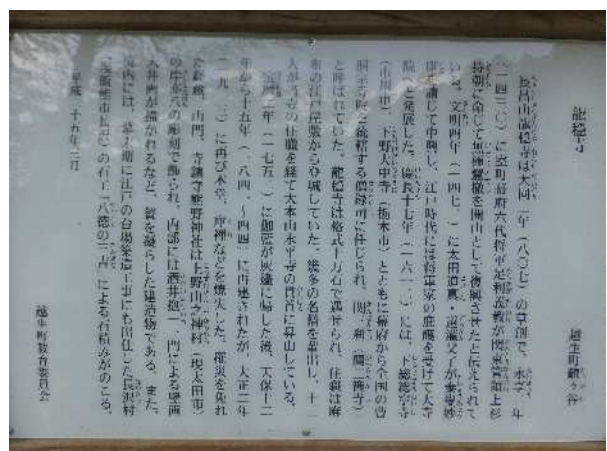 龍穏寺
越生町龍ヶ谷
長昌山龍穏寺は大同二年(八〇七)の草創で、永享二年
(一四三〇)に室町幕府六代将軍足利義教が関東管領上杉
持朝に命じて無極慧徹を開山として復興させたと伝えられて
いる。文明四年(一四七二)に太田道真・道灌父子が泰叟妙
康を請じて中興し、江戸時代には将軍家の庇護を受けて大寺
院へと発展した。慶長十七年(一六一二)には、下総総寧寺
(市川市)、下野大中寺(栃木市)とともに幕府から全国の曹
洞宗寺院を統轄する僧録司に任じられ、関三刹(関三箇寺)
と呼ばれていた。龍穏寺は格式十万石で遇せられ、住職は麻
布の江戸屋敷から登城していた。幾多の名僧を輩出し、十二
人が当寺の住職を経て大本山永平寺の貫首に昇山している。
宝暦二年(一七五二)に伽藍が灰燼に帰した後、天保十二
年から十五年(一八四一~四四)に再建されたが、大正二年
(一九一三)に再び本堂、庫裡などを焼失した。罹災を免れ
た経蔵、山門、寺鎮守熊野神社は上野山之神村(現太田市)
の岸亦八の彫刻で飾られ、内部には酒井抱一一門による壁画
天井画が描かれるなど、贅を凝らした建造物である。また、
境内には、幕末期に江戸の台場築造工事にも出仕した長沢村
の石工「八徳の三吉」による石積みがのこる。
平成二十五年三月
越生町教育委員会